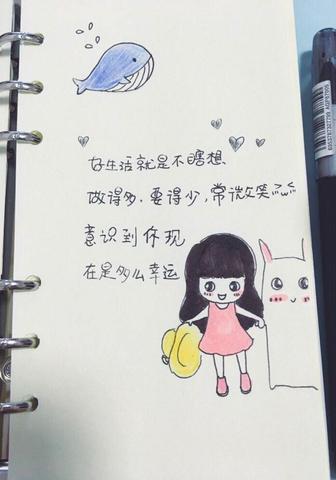 好生活就是不瞎想
做得多.要得少,常微笑
意识到你现
在是多么幸运